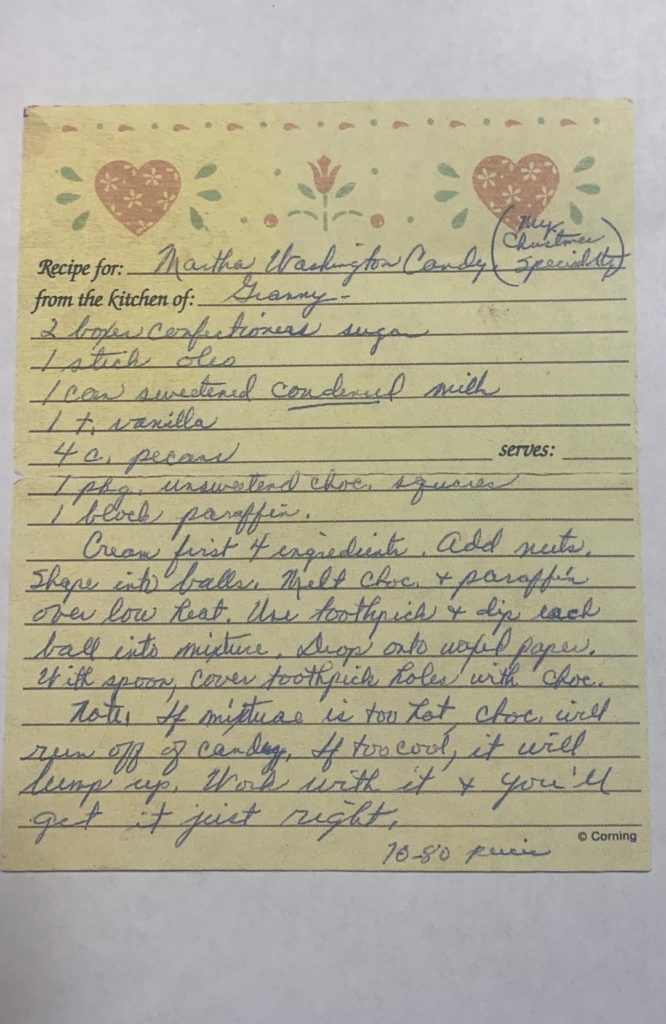 (My
Christmas
Specialty)
Recipe for: Martha Washington Candy
from the kitchen of: Granny-
2 boxes confectioners sugar
1 stick oleo
1 can sweetened condensed milk
1 t. vanilla
4 c. pecans
serves:
1 pkg. unsweetend choc. squares
1 block paraffin.
Cream first 4 ingredients. Add nuts.
Shape into balls. Melt choc. & paraffin
over low heat. Use toothpick & dip each
ball into mixture. Drop onto waxed paper.
With spoon, cover toothpick holes with choc.
Note: If mixture is too hot, choc. will
run off of candy. If too cool, it will
lump up. Work with it & you'll
get it just right.
© Corning
70-80 pieces